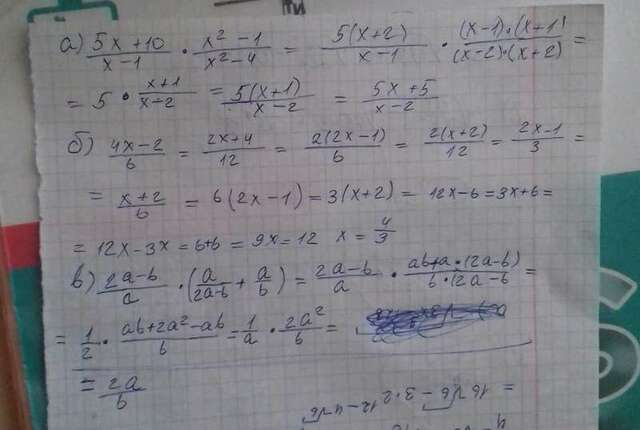 а) (5x+10)/(x-1) · (x²-1)/(x²-4) = 5(x+2)/(x-1) · (x-1)·(x+1)/(x-2)·(x+2) =
= 5 · (x+1)/(x-2) = 5(x+1)/(x-2) = (5x+5)/(x-2)
б) (4x-2)/6 = (2x+4)/12 = 2(2x-1)/6 = 2(x+2)/12 = (2x-1)/3 =
= (x+2)/6 = 6(2x-1)=3(x+2)= 12x-6=3x+6=
= 12x-3x=6+6=9x=12 x=4/3
в) (2a-b)/a · (a/(2a-b) + a/b) = (2a-b)/a · (ab+a·(2a-b))/(b·(2a-b) =
= 1/2 · (ab+2a²-ab)/b = 1/a · 2a²/b =
= 2a/b